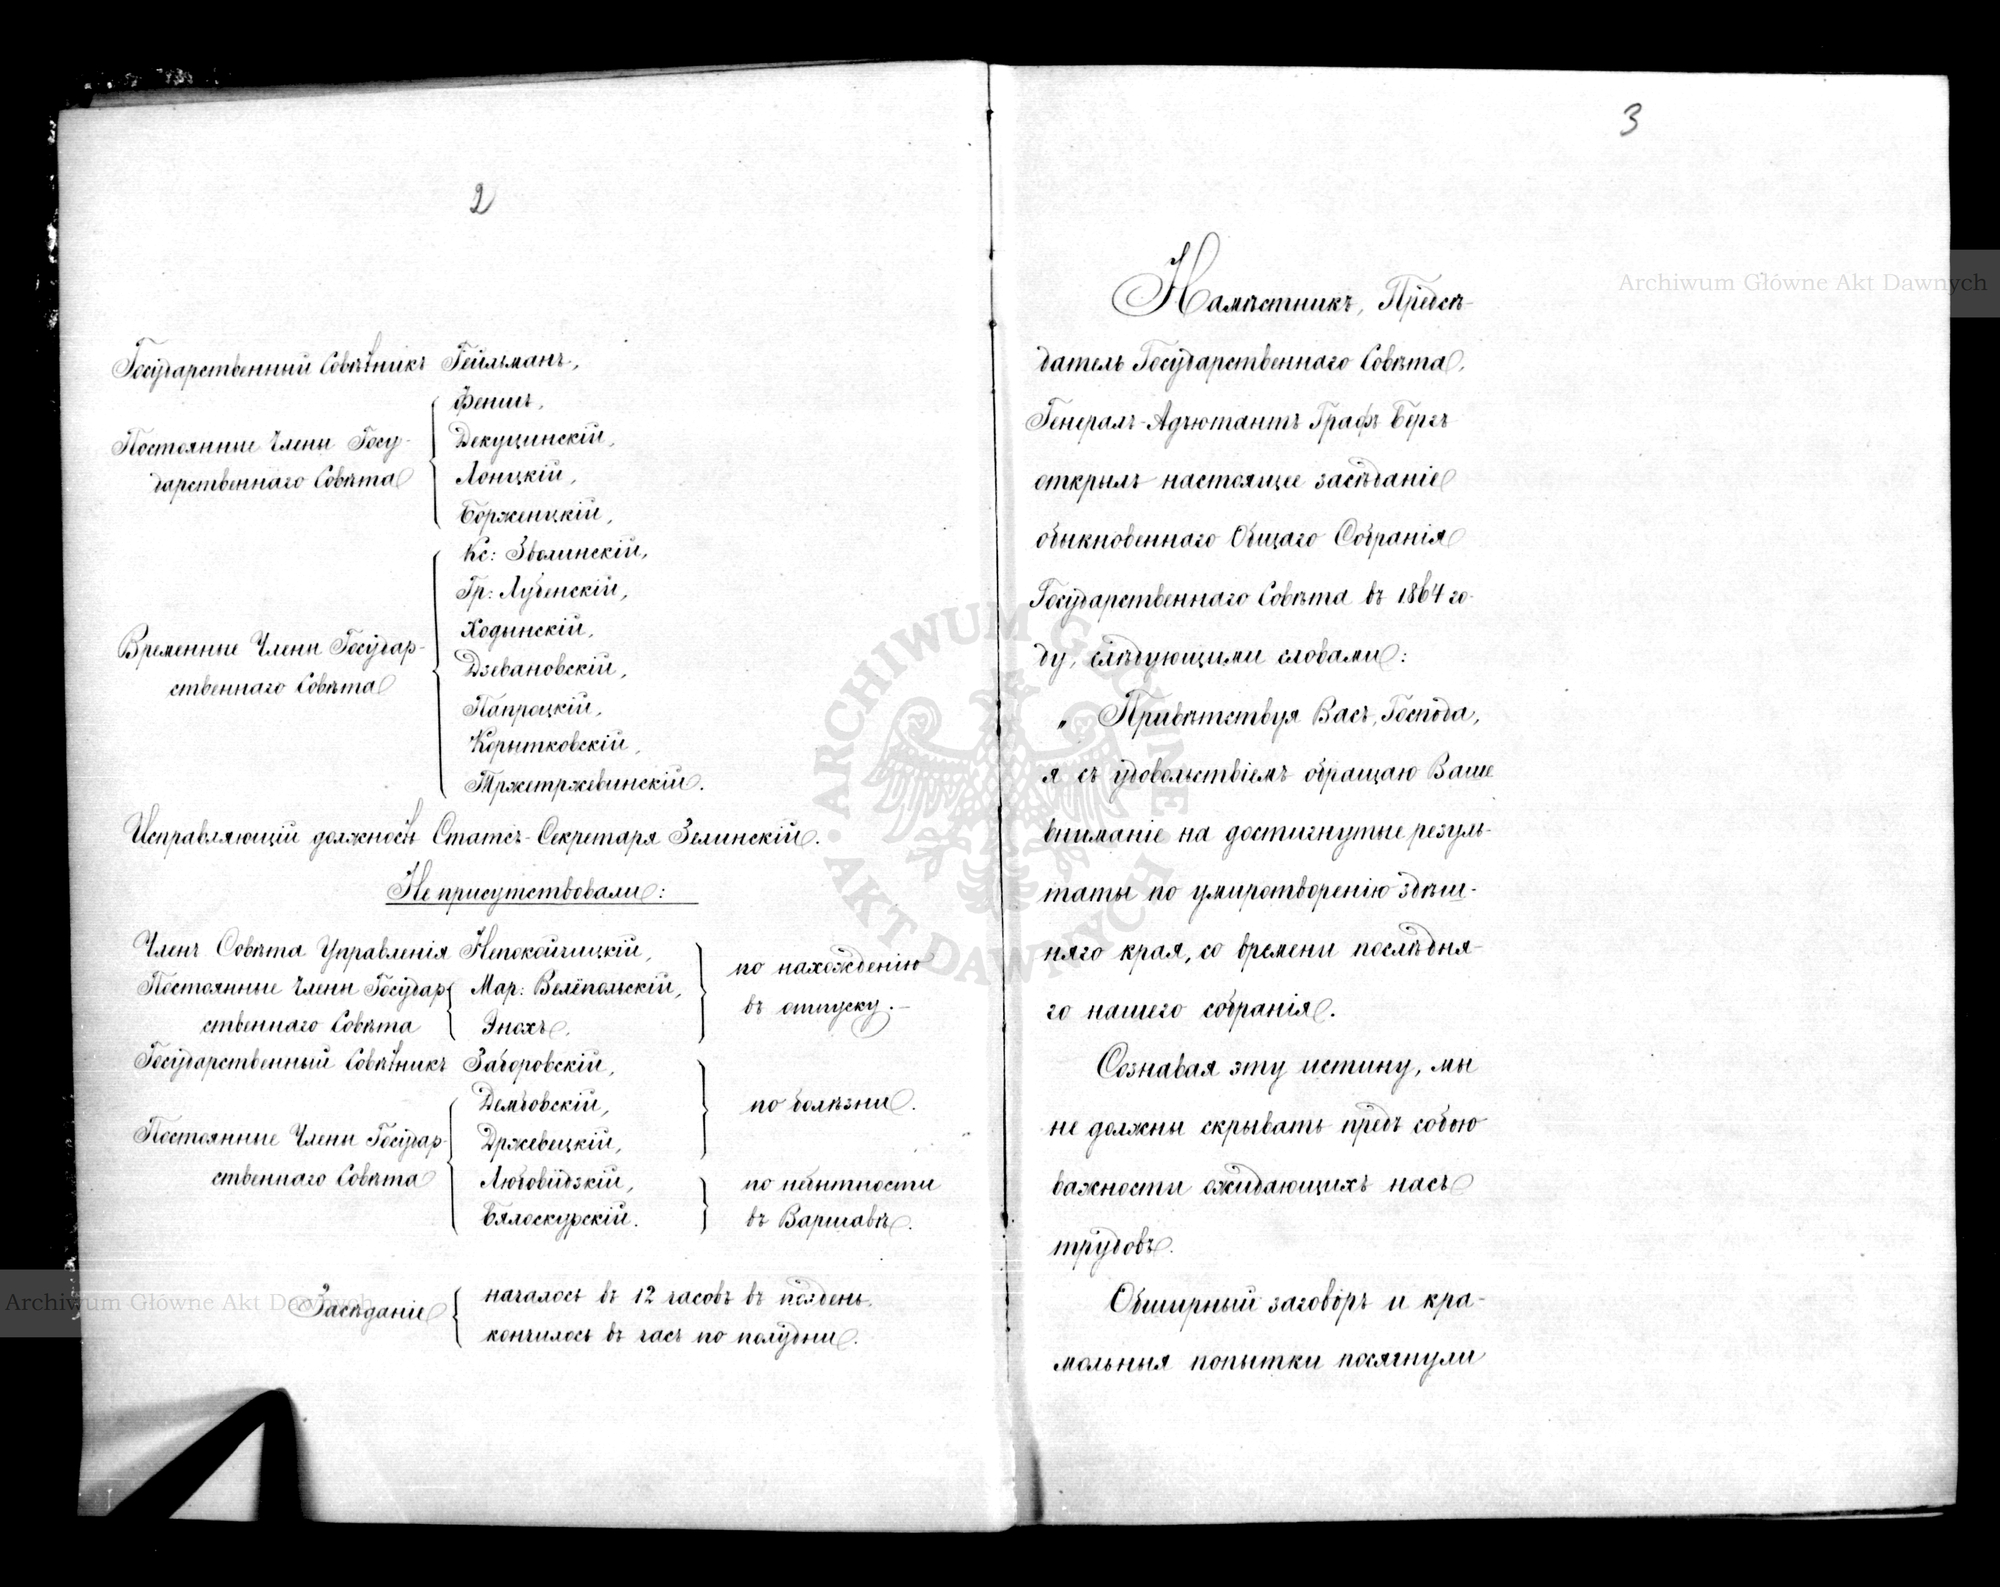 2
Государственный Совѣтникъ Гейльманъ,
Постоянные Члены Госу-
дарственнаго Совѣта
Феншъ,
Декуцинскій,
Лонцкій,
Борженцкій,
Временные Члены Государ-
ственнаго Совѣта
Кс: Зволинскій,
Гр: Лубенскій,
Ходынскій,
Дзевановскій,
Папроцкій,
Корытковскій,
Тржетржевинскій.
Исправляющій должность Статсъ-Секретаря Зелинскій.
Не присутствовали:
Членъ Совѣта Управленія Непокойчицкій,
Постоянные Члены Государ-
ственнаго Совѣта
Мар: Велёпольскій,
Энохъ.
по нахожденію
въ отпуску.-
Государственный Совѣтникъ Заборовскій,
Постоянные Члены Государ-
ственнаго Совѣта
Дембовскій,
Држевецкій,
по болѣзни.
Любовидзкій,
Бялоскурскій.
по небытности
въ Варшавѣ.
Засѣданіе
началось въ 12 часовъ въ полдень.
кончилось въ часъ по полудни.
3
Намѣстникъ, Предсѣ-
датель Государственнаго Совѣта,
Генералъ-Адъютантъ Графъ Бергъ
открылъ настоящее засѣданіе
обыкновеннаго Общаго Собранія
Государственнаго Совѣта въ 1864 го-
ду, слѣдующими словами:
„ Привѣтствуя Васъ, Господа,
я съ удовольствіемъ обращаю Ваше
вниманіе на достигнутые резуль-
таты по умиротворенію здѣш-
няго края, со времени послѣдня-
го нашего собранія.
Сознавая эту истину, мы
не должны скрывать предъ собою
важности ожидающихъ насъ
трудовъ.
Обширный заговоръ и кра-
мольныя попытки посягнули
Archiwum Główne Akt Dawnych
Archiwum Główne Akt Dawnych
ARCHIWUM GŁÓWNE AKT DAWNYCH